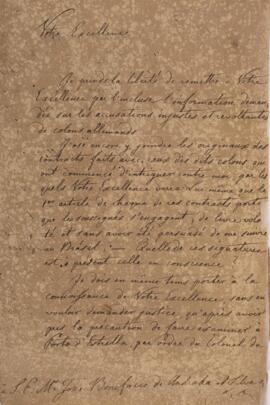 Votre Excellence
Je prends la liberté de remettre à Votre
Excellence par l'incluse l'information deman
dée sur les accusations injustes et revoltantes
de colons allemands
J'ose encore y joindre les originaux des
contracts faits avec ceux des dits colons qui
ont commencé d'intriguer contre moi, par les
quels Votre Excellence verra Elle même que le
1er article de chacun de ces contracts porte
que les soussignés s'engagent, de leur volo
té et sans avoir été persuadé de me suivre
au Brésil: — Quelle de ces signatures
est, à présent celle en conscience
Je dois en même tems porter à la
connaissance de Votre Excellence, sans en
vouloir demander justice, qu'après avoir
pris la précaution de faire examiner à
Porto d'Estrella, par ordre du Colonel du
à S. E. Mr José Bonifacio de Andrada e Silva